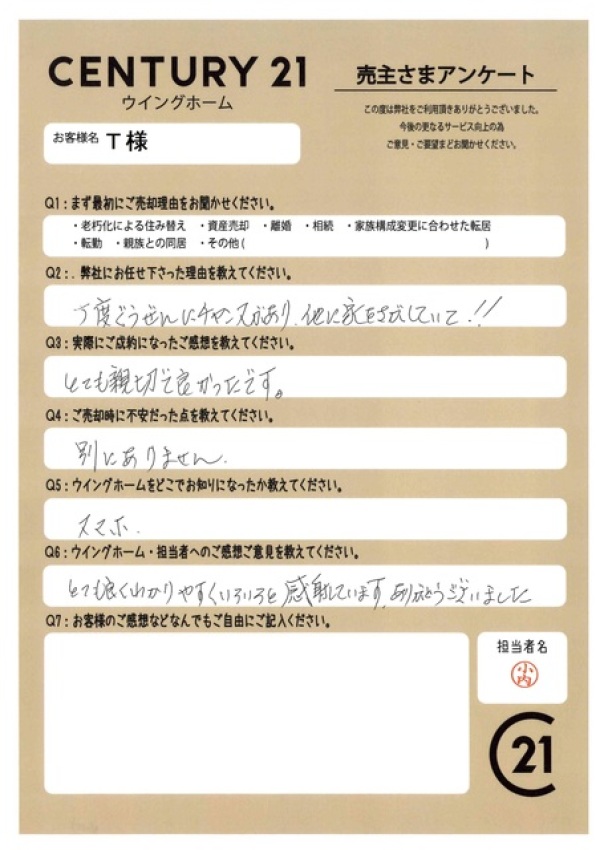 CENTURY 21
ウイングホーム
売主さまアンケート
この度は弊社をご利用頂きありがとうございました。
今後の更なるサービス向上の為
ご意見・ご要望までお聞かせください。
お客様名 T 様
Q1:まず最初にご売却理由をお聞かせください。
・老朽化による住み替え ・資産売却 ・離婚 ・相続 ・家族構成変更に合わせた転居
・転勤 ・親族との同居 ・その他( )
Q2:. 弊社にお任せ下さった理由を教えてください。
丁度ぐうぜんにチャンスがあり、他に家をさがしていて!!
Q3:実際にご成約になったご感想を教えてください。
とても親切で良かったです。
Q4:ご売却時に不安だった点を教えてください。
別にありません.
Q5:ウイングホームをどこでお知りになったか教えてください。
スマホ.
Q6:ウイングホーム・担当者へのご感想ご意見を教えてください。
とても良くわかりやすくいろいろと感謝しています、ありがとうございました
Q7:お客様のご感想などなんでもご自由にご記入ください。
担当者名
小内
C21